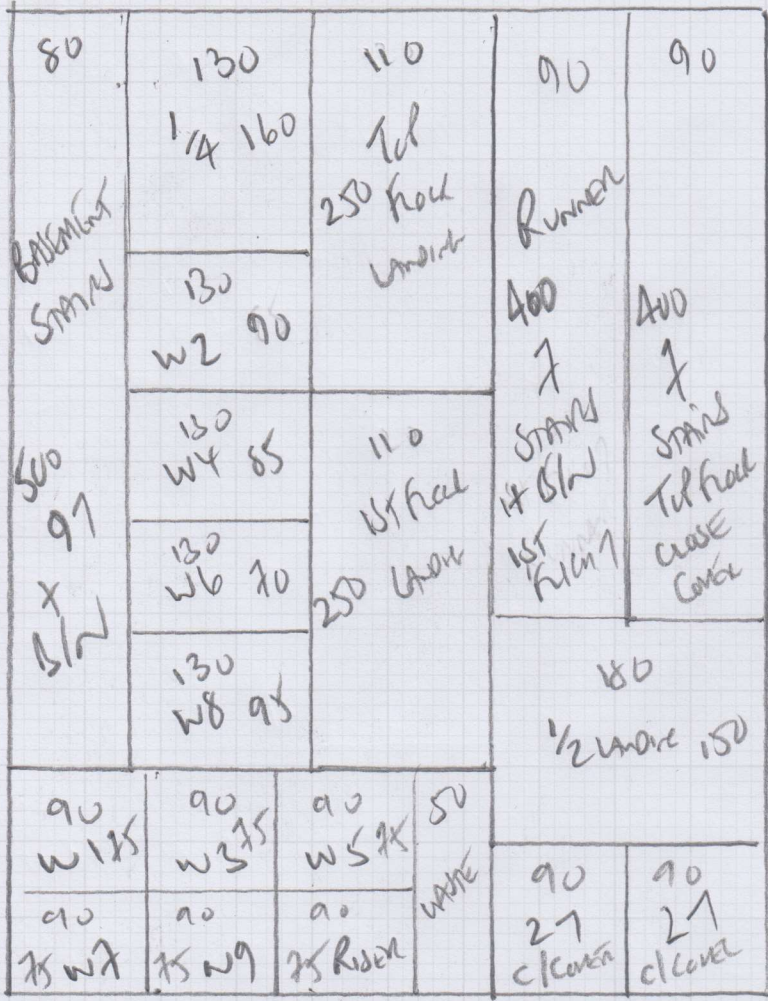 80
BASEMENT
STAIRS
500
91
+
B/N
130
1/4 160
130
W2 90
130
W4 85
130
W6 70
130
W8 95
110
TOP
250 FLOOR
LANDING
110
1ST FLOOR
250 LANDING
90
RUNNER
400
7
STAIRS
1+ B/N
1ST
FLIGHT
90
400
7
STAIRS
TOP FLOOR
CLOSE
COVER
180
1/2 LANDING 150
90
W1 75
90
W3 75
90
W5 75
50
WASTE
90
75 W7
90
75 W9
90
75 RISER
90
21
C/COVER
90
21
C/COVER